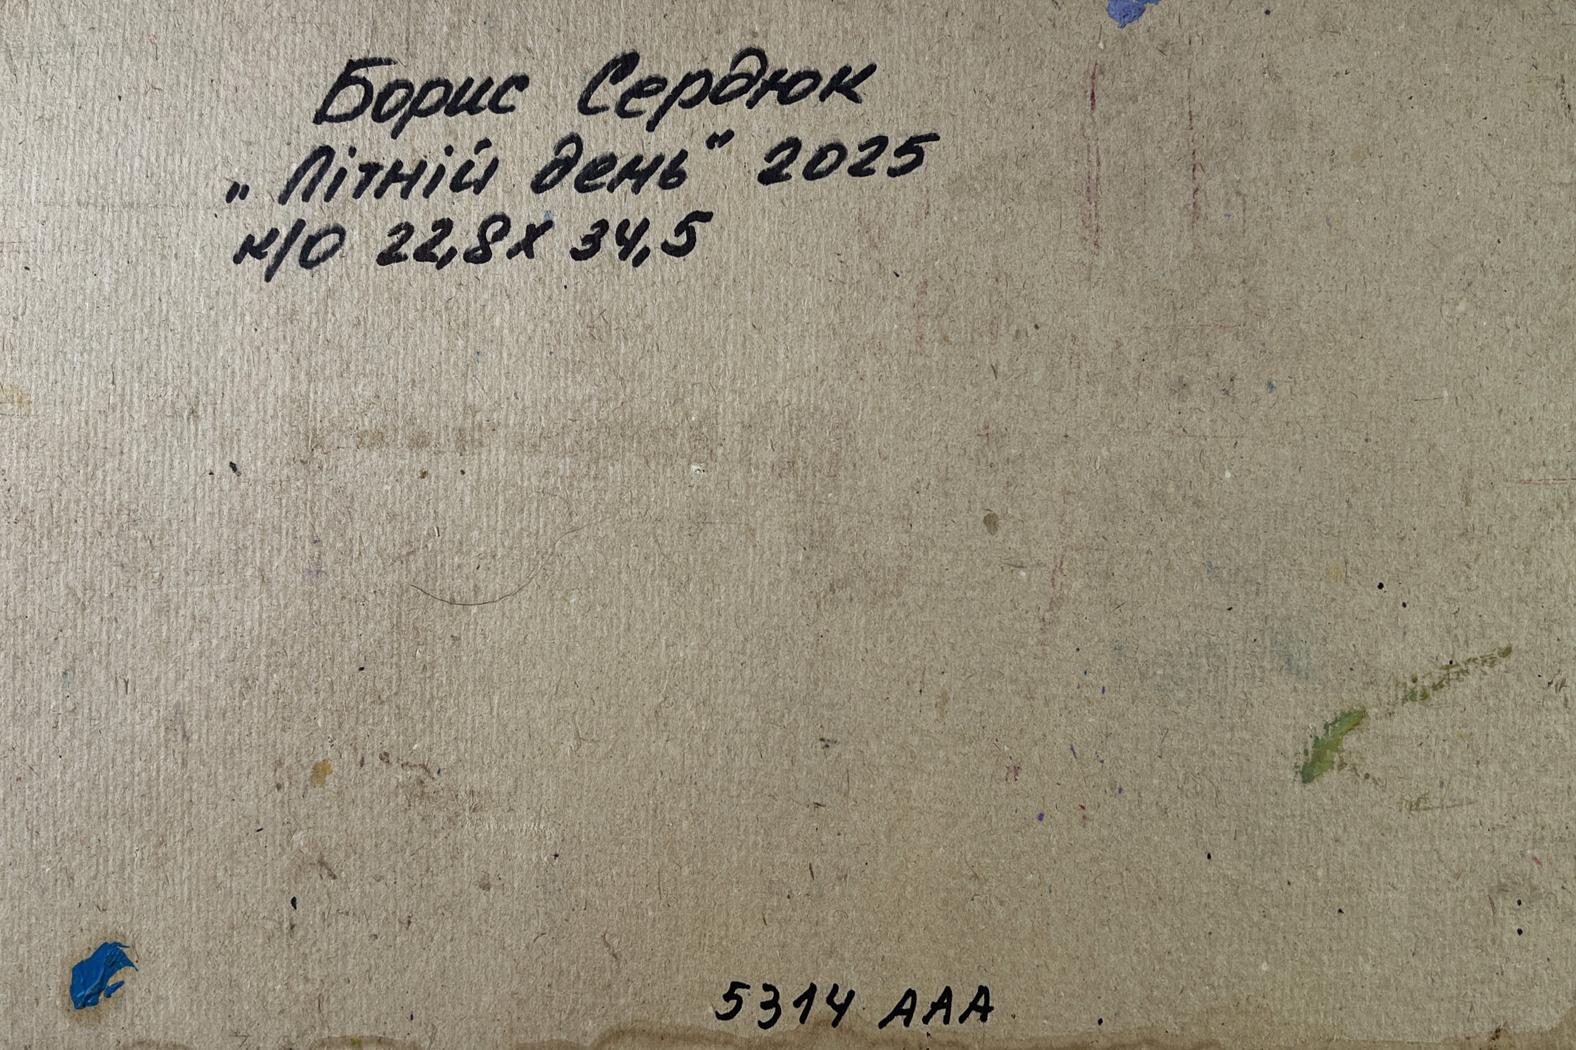 Борис Сердюк
„Літній день" 2025
к/о 22,8х 34,5
5314 ААА